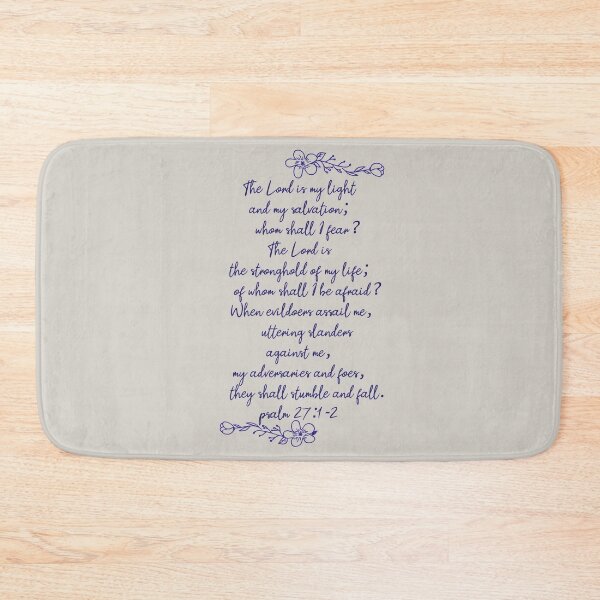 The Lord is my light
and my salvation;
whom shall I fear?
The Lord is
the stronghold of my life;
of whom shall I be afraid?
When evildoers assail me,
uttering slanders
against me,
my adversaries and foes,
they shall stumble and fall.
psalm 27:1-2